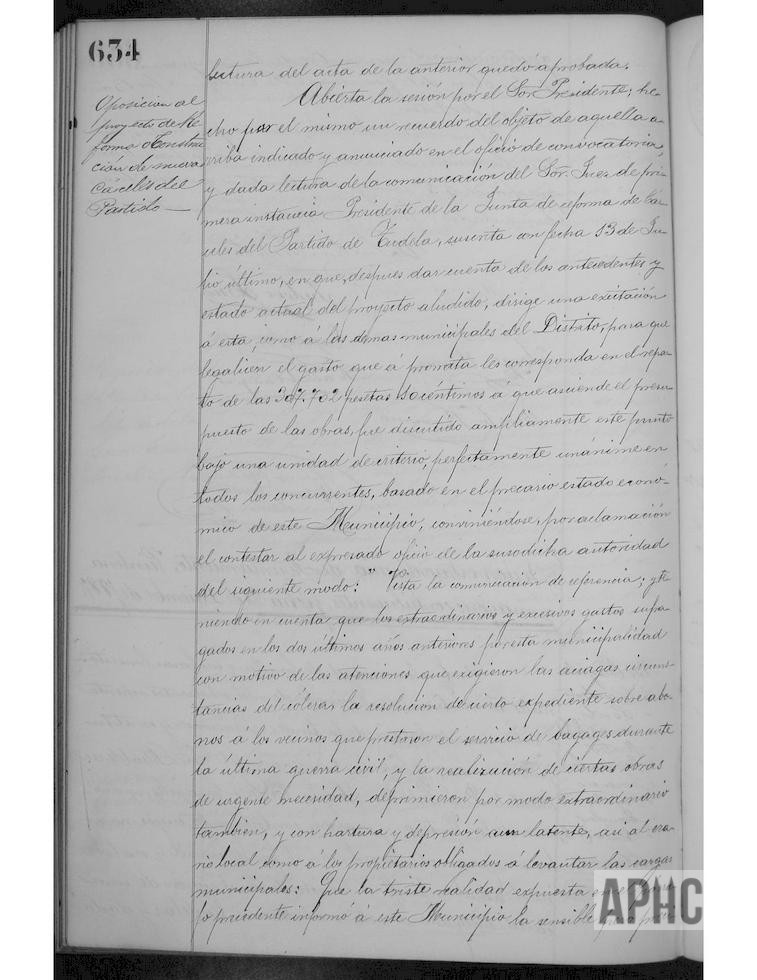 634
Oposicion al
proyecto de Re
forma o Construc
ción de nueva
Cárceles del
Partido —
lectura del acta de la anterior quedó aprobada.
Abierta la sesión por el Sor. Presidente; he
cho por el mismo un recuerdo del objeto de aquella a-
rriba indicado y anunciado en el oficio de convocatoria,
y dada lectura de la comunicación del Sor. Juez de pri-
mera instancia Presidente de la Junta de reforma de Cár-
celes del Partido de Tudela, suscrita con fecha 13 de Ju-
lio último, en que, despues dar cuenta de los antecedentes y
estado actual del proyecto aludido, dirige una exitación
á esta, como á las demas municipales del Distrito, para que
legalicen el gasto que á prorrata les corresponda en el repar-
to de las 307.702 pesetas céntimos á que asciende el presu-
puesto de las obras, fue discutido ampliamente este punto
bajo una unidad de criterio, perfectamente unánime en
todos los concurrentes, basado en el precario estado econó-
mico de este Municipio, conviniéndose, por aclamación
el contestar al expresado oficio de la susodicha autoridad
del siguiente modo: " Vista la comunicación de referencia; y te-
niendo en cuenta que los extraordinarios y excesivos gastos sufra-
gados en los dos últimos años anteriores por esta municipalidad
con motivo de las atenciones que exigieron las aciagas circuns-
tancias del cólera, la resolución de cierto expediente sobre abo-
nos á los vecinos que prestaron el servicio de bagages durante
la última guerra civil, y la realización de ciertas obras
de urgente necesidad, deprimieron por modo extraordinario
tambien, y con hartura y depresión aun latente, asi al era-
rio local como á los propietarios obligados á levantar las cargas
municipales: Que la triste realidad expuesta en el
fo precedente informó á este Municipio la sensible pero
APHC